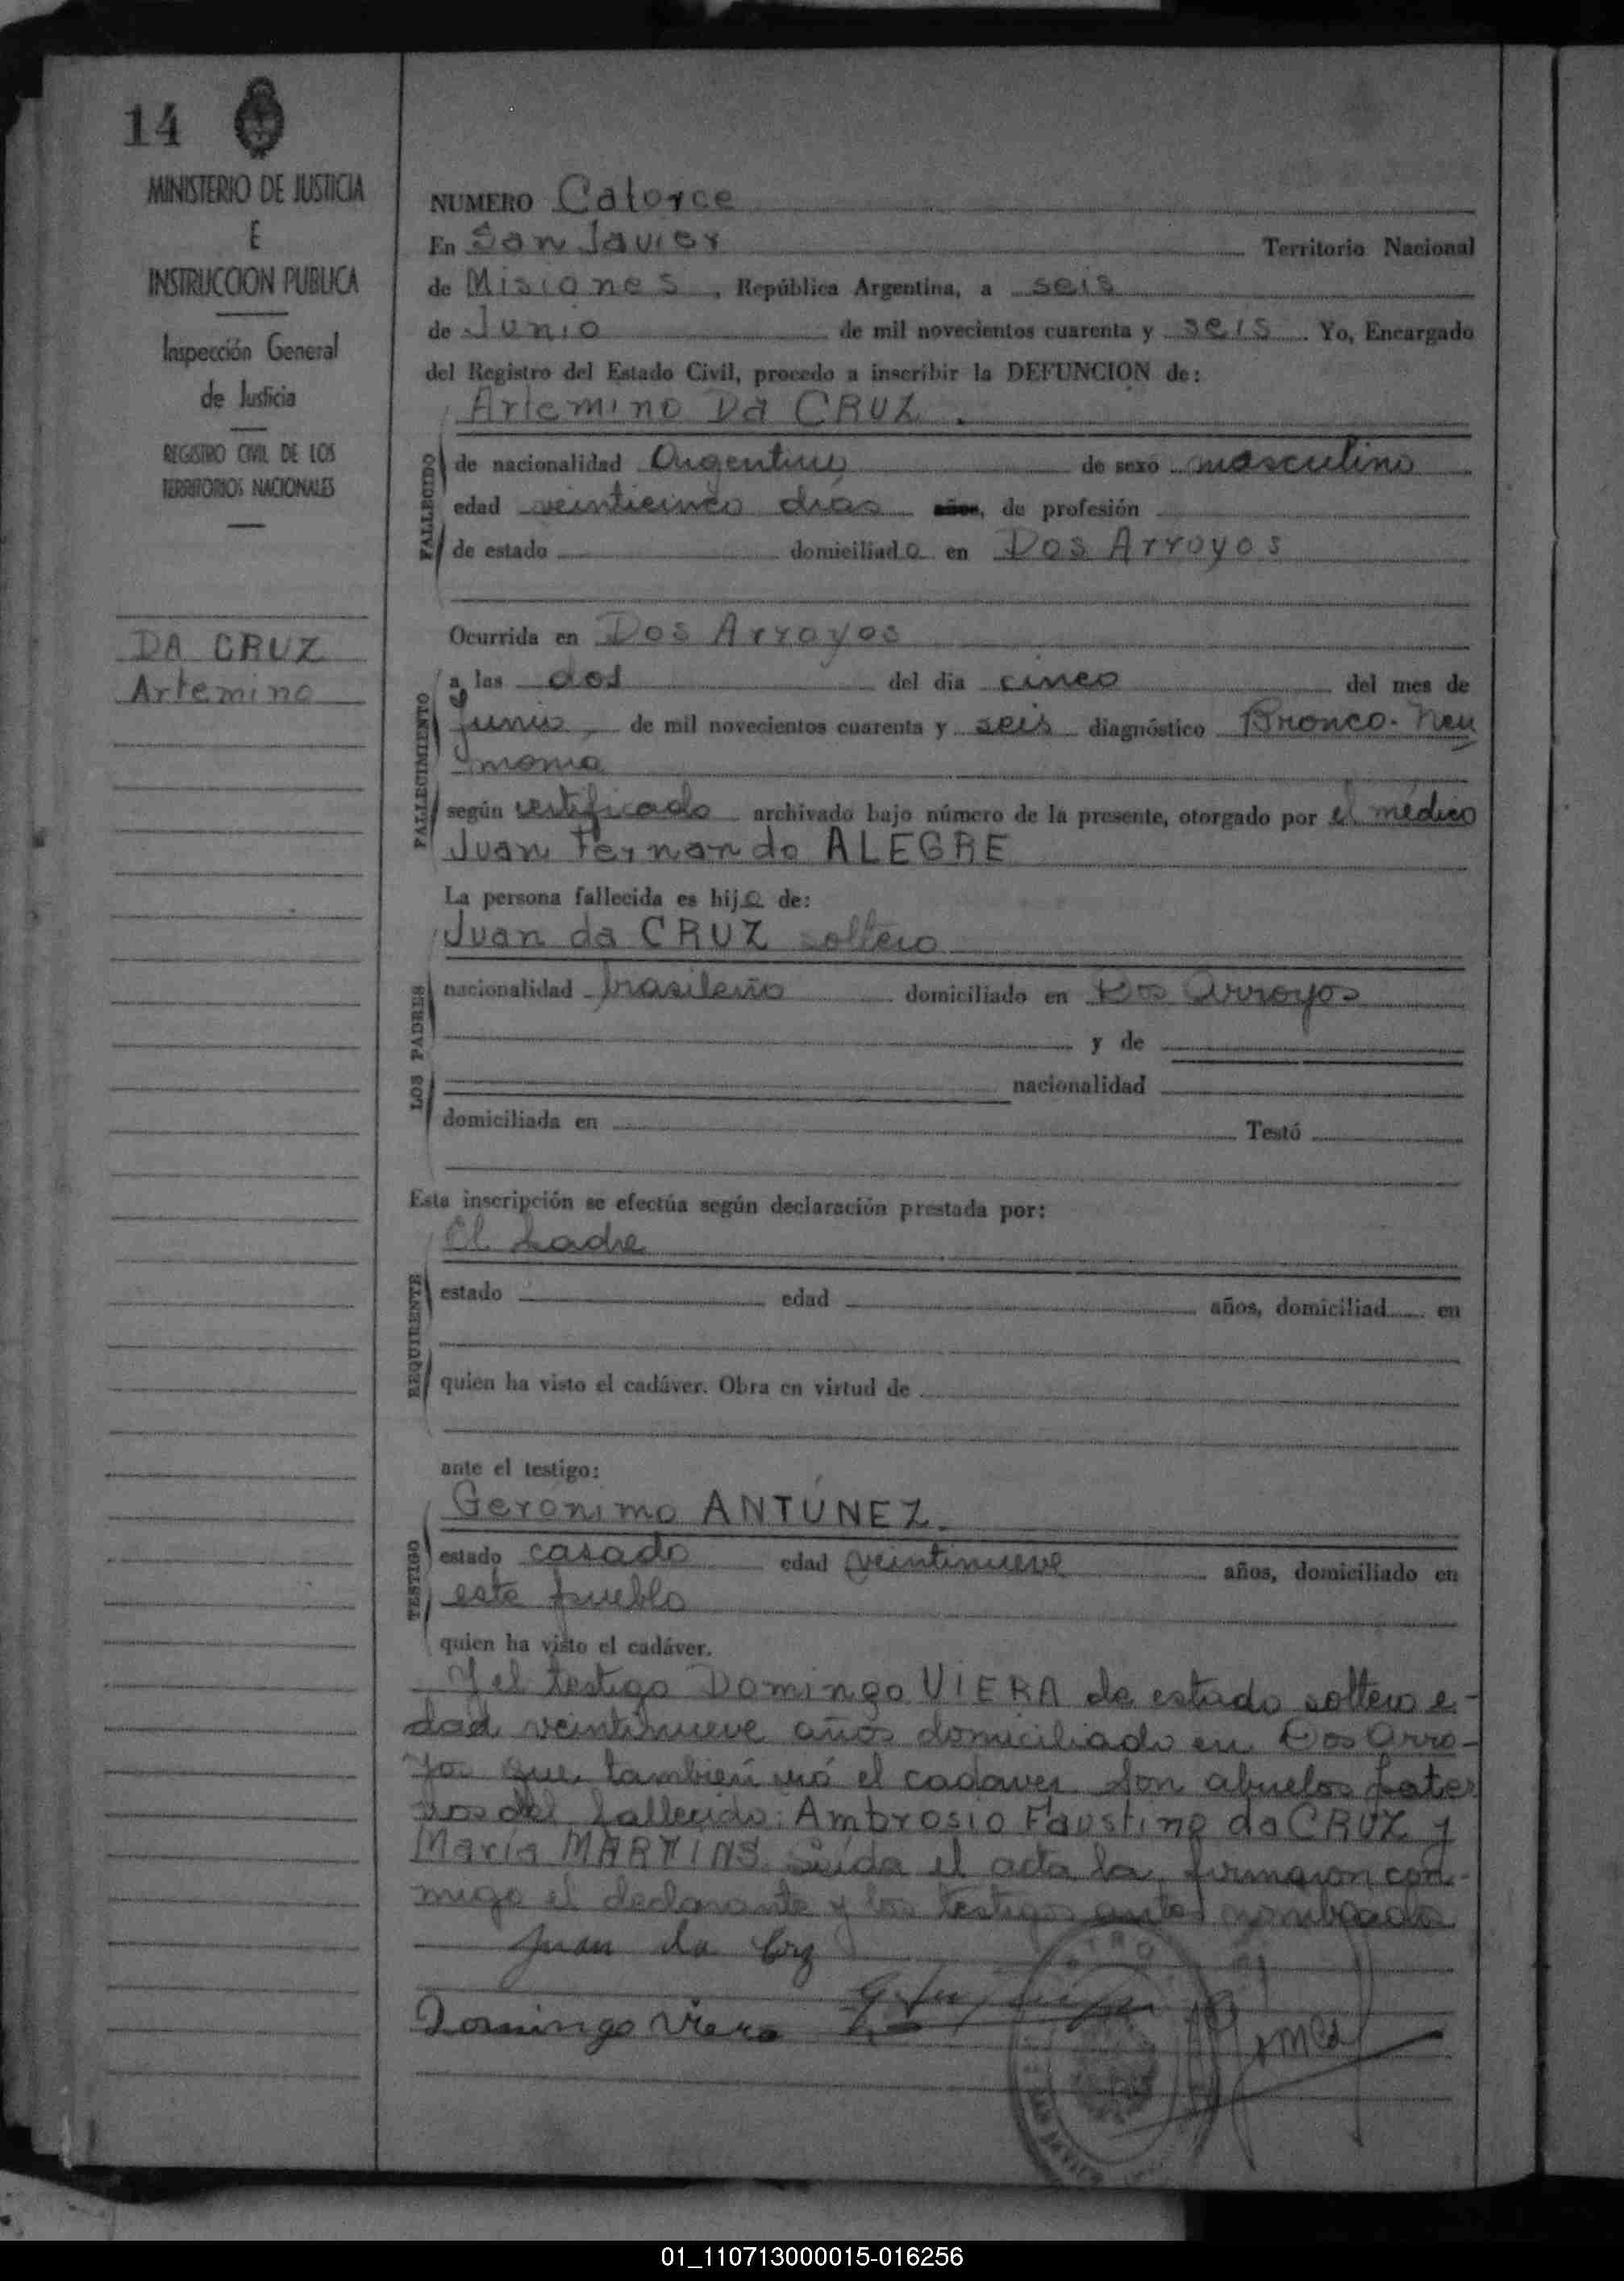 14
MINISTERIO DE JUSTICIA
E
INSTRUCCION PUBLICA
Inspección General
de Justicia
REGISTRO CIVIL DE LOS
TERRITORIOS NACIONALES
DA CRUZ
Artemino
NUMERO Catorce
En San Javier Territorio Nacional
de Misiones, República Argentina, a seis
de Junio de mil novecientos cuarenta y seis. Yo, Encargado
del Registro del Estado Civil, procedo a inscribir la DEFUNCION de:
Artemino Da CRUZ.
FALLECIDO
de nacionalidad Argentino de sexo masculino
edad veinticinco dias años, de profesión
de estado domiciliado en Dos Arroyos
Ocurrida en Dos Arroyos
FALLECIMIENTO
a las dos del día cinco del mes de
Junio, de mil novecientos cuarenta y seis diagnóstico Bronco-Neu
monia
según certificado archivado bajo número de la presente, otorgado por el médico
Juan Fernando ALEGRE
La persona fallecida es hijo de:
Juan da CRUZ soltero
LOS PADRES
nacionalidad brasileño domiciliado en Dos Arroyos
y de
nacionalidad
domiciliada en Testó
Esta inscripción se efectúa según declaración prestada por:
El Padre
REQUIRENTE
estado edad años, domiciliad en
quien ha visto el cadáver. Obra en virtud de
ante el testigo:
Geronimo ANTÚNEZ.
TESTIGO
estado casado edad veintinueve años, domiciliado en
este pueblo
quien ha visto el cadáver.
Y el testigo Domingo VIERA de estado soltero e-
dad veintinueve años domiciliado en Dos Arro-
yos que también vió el cadaver Son abuelos pater
nos del fallecido: Ambrosio Faustino da CRUZ y
María MARTINS. Leída el acta la firmaron con-
migo el declarante y los testigos antes nombrados
Juan da Cruz
Domingo Viera
01_110713000015-016256